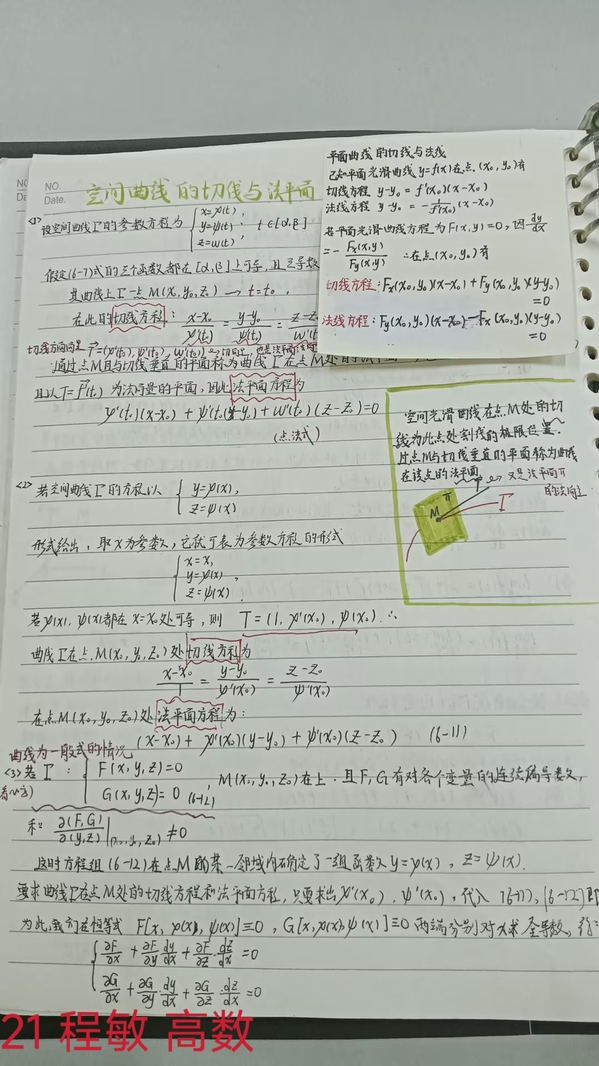 NO.
Date.
空间曲线的切线与法平面
<1> 设空间曲线Γ的参数方程为 { x=φ(t), y=ψ(t), z=ω(t). t∈[α,β]
假定(6-7)式的三个函数都在[α,β]上可导,且三导数
其曲线上Γ一点M(x₀,y₀,z₀) → t=t₀
在此的切线方程: (x-x₀)/φ'(t) = (y-y₀)/ψ'(t) = (z-z₀)/ω'(t
切线方向向量 T=(φ'(t₀),ψ'(t₀),ω'(t₀))
通过点M且与切线垂直的平面称为曲线Γ在点M处的法平面
且以T=f'(t₀)为法向量的平面,因此法平面方程为
φ'(t₀)(x-x₀)+ψ'(t₀)(y-y₀)+ω'(t₀)(z-z₀)=0
(点法式)
<2> 若空间曲线Γ的方程以 { y=φ(x), z=ψ(x)
形式给出,取x为参数,它就可表为参数方程的形式
{ x=x, y=φ(x), z=ψ(x).
若φ(x),ψ(x)都在x=x₀处可导,则 T=(1,φ'(x₀),ψ'(x₀). ∴
曲线Γ在点M(x₀,y₀,z₀)处切线方程为
(x-x₀)/1 = (y-y₀)/φ'(x₀) = (z-z₀)/ψ'(x₀)
在点M(x₀,y₀,z₀)处法平面方程为:
(x-x₀)+φ'(x₀)(y-y₀)+ψ'(x₀)(z-z₀) (6-11)
曲线为一般式的情况
<3>若Γ: { F(x,y,z)=0 G(x,y,z)=0 (6-12), M(x₀,y₀,z₀)在上.且F,G有对各个变量的连续偏导数,
和 ∂(F,G)/∂(y,z)|(x₀,y₀,z₀) ≠0
这时方程组(6-12)在点M的某一邻域内确定了一组函数 y=φ(x), z=ψ(x).
要求曲线Γ在点M处的切线方程和法平面方程,只要求出φ'(x₀),ψ'(x₀),代入(6-11),(6-12)即
为此,我们在恒等式 F[x,φ(x),ψ(x)]≡0, G[x,φ(x),ψ(x)]≡0 两端分别对x求全导数,得
{ ∂F/∂x+∂F/∂y·dy/dx+∂F/∂z·dz/dx=0
∂G/∂x+∂G/∂y·dy/dx+∂G/∂z·dz/dx=0
平面曲线的切线与法线
已知平面光滑曲线y=f(x)在点(x₀,y₀)有
切线方程 y-y₀=f'(x₀)(x-x₀)
法线方程 y-y₀=-1/f'(x₀)(x-x₀)
若平面光滑曲线方程为F(x,y)=0,因dy/dx
=-Fx(x,y)/Fy(x,y) ∴在点(x₀,y₀)有
切线方程:Fx(x₀,y₀)(x-x₀)+Fy(x₀,y₀)(y-y₀)
=0
法线方程:Fy(x₀,y₀)(x-x₀)-Fx(x₀,y₀)(y-y₀)
=0
空间光滑曲线在点M处的切
线为此点处割线的极限位置.
过点M与切线垂直的平面称为曲线
在该点的法平面
又是法平面π
的法向量
M π T Γ
21 程敏 高数